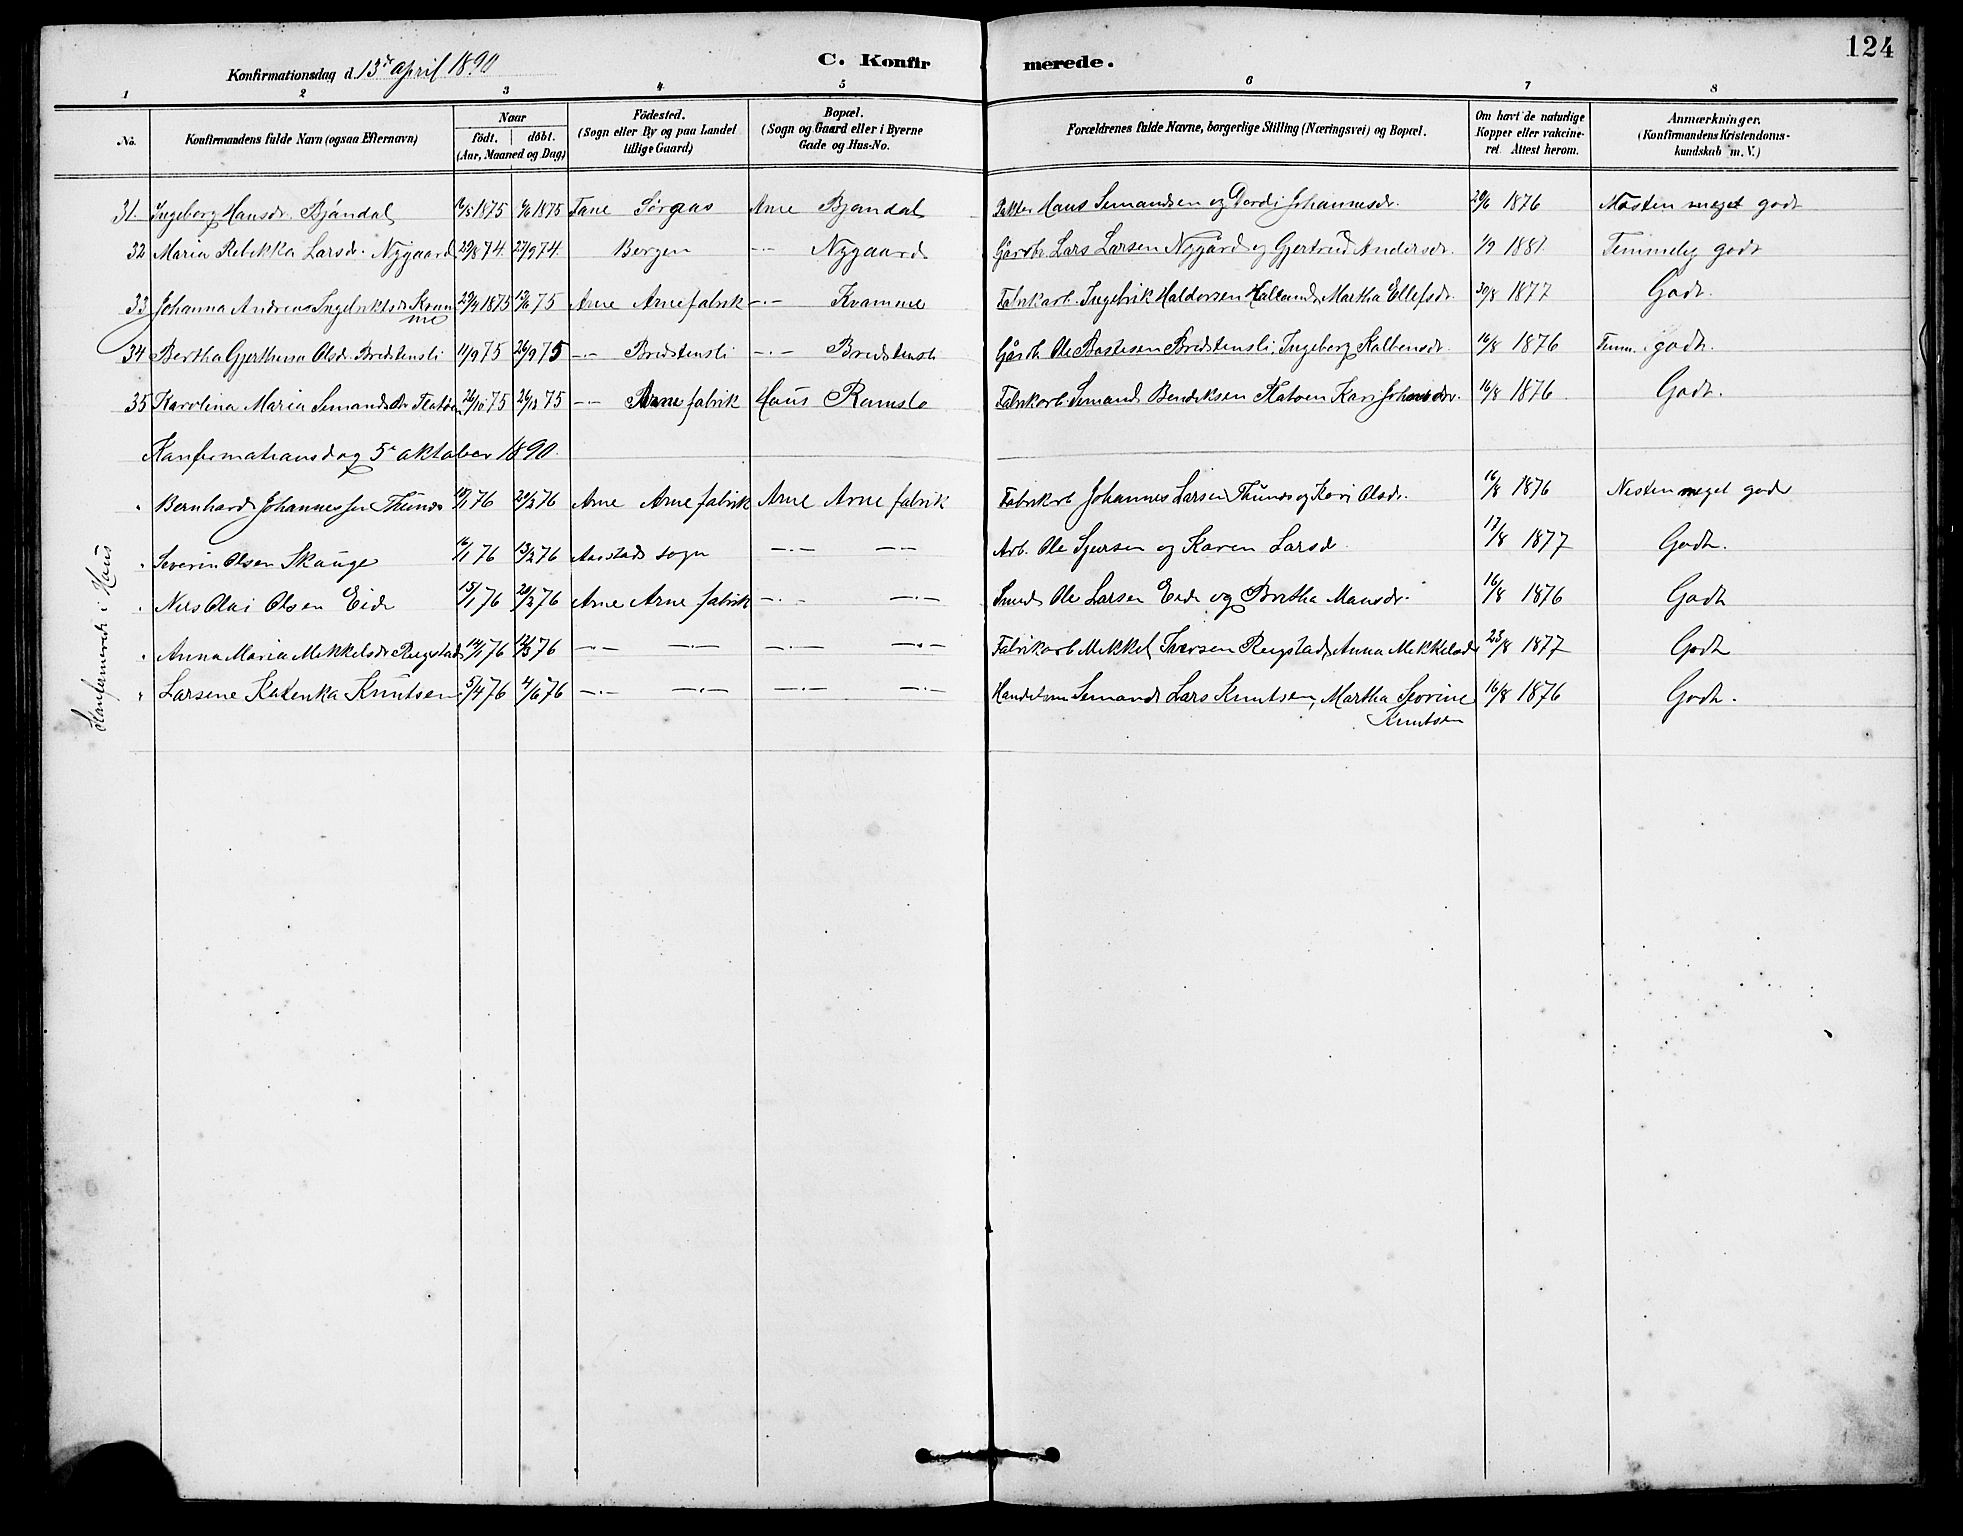 124
Konfirmationsdag d. 13d April 1890
C. Konfirmerede.
1 2 3 4 5 6 7 8
No. Konfirmandens fulde Navn (ogsaa Efternavn) Naar født. døbt. (Aar, Maaned og Dag) Fødested. (Sogn eller By og paa Landet tillige Gaard) Bopæl. (Sogn og Gaard eller i Byerne Gade og Hus-No. Forældrenes fulde Navne, borgerlige Stilling (Næringsvei) og Bopæl. Om havt de naturlige Kopper eller vakcineret Attest herom. Anmærkninger. (Konfirmandens Kristendomskundskab m. V.)
31. Ingeborg Hansdr. Bjøndal 1875 1875 Fane Arne Bjøndal Hans Semundsen og Gordi Johannesdr. 29/6 1876 Næsten meget godt
32 Maria Rebekka Larsdr. Nygaard 29/8 74. 27/9 74. Bergen -..- Nygaard Gårdbr. Lars Larsen Nygård og Gjertrud Andersdr. 1/9 1881. Temmelig godt
33 Johanna Andrea Ingebriktsdr Kvamme 1875 75 Arne Arne fabrik -..- Kvamme Fabrikarb. Ingebrik Haldorsen Martha Ellefsdr. 30/8 1877 Godt.
34 Bertha Gjerthina Olsdr. Bredstensli 11/9 75 26/9 75 -..- Bredstensli -..- Bredstensli Gårdb. Ole Bredstensli, Ingeborg 16/8 1876 Temm. godt.
35 Karolina Maria Semundsdr 26/10 75 75 -..- Arne fabrik Haus Ramslo Fabrikarb. Semund Bendiksen Kari 16/8 1876. Godt.
Konfirmationsdag 5. oktober 1890.
" Bernhard Johannessen Thunes 76 20/2 76 Arne Arne fabrik Arne Arne fabrik Fabrikarb Johannes Larsen Thunes og Kari Olsdr. 16/8 1876 Nesten meget godt
" Severin Olsen Skauge 76 13/2 76 Aarstads sogn -..- -..- Arb. Ole Sjursen og Karen Larsdr. 17/8 1877 Godt.
" Nils Olai Olsen Eide 15/1 76 20/2 76 Arne Arne fabrik -..- -..- Smed Ole Larsen Eide og Bretha Monsdr. 16/8 1876 Godt
" Anna Maria Mikkelsdr Regstad 76 12/3 76 -..- -..- -..- -..- Fabrikarb Mikkel Iversen Regstad, Anna Mikkelsdr 23/8 1877 Godt
" Larsene Katenka Knutsen 5/4 76 4/6 76 -..- -..- -..- -..- Handelsm Semund Lars Knutsen, Martha Severine Knutsen 16/8 1876 Godt.
Konfirmerede i Haus